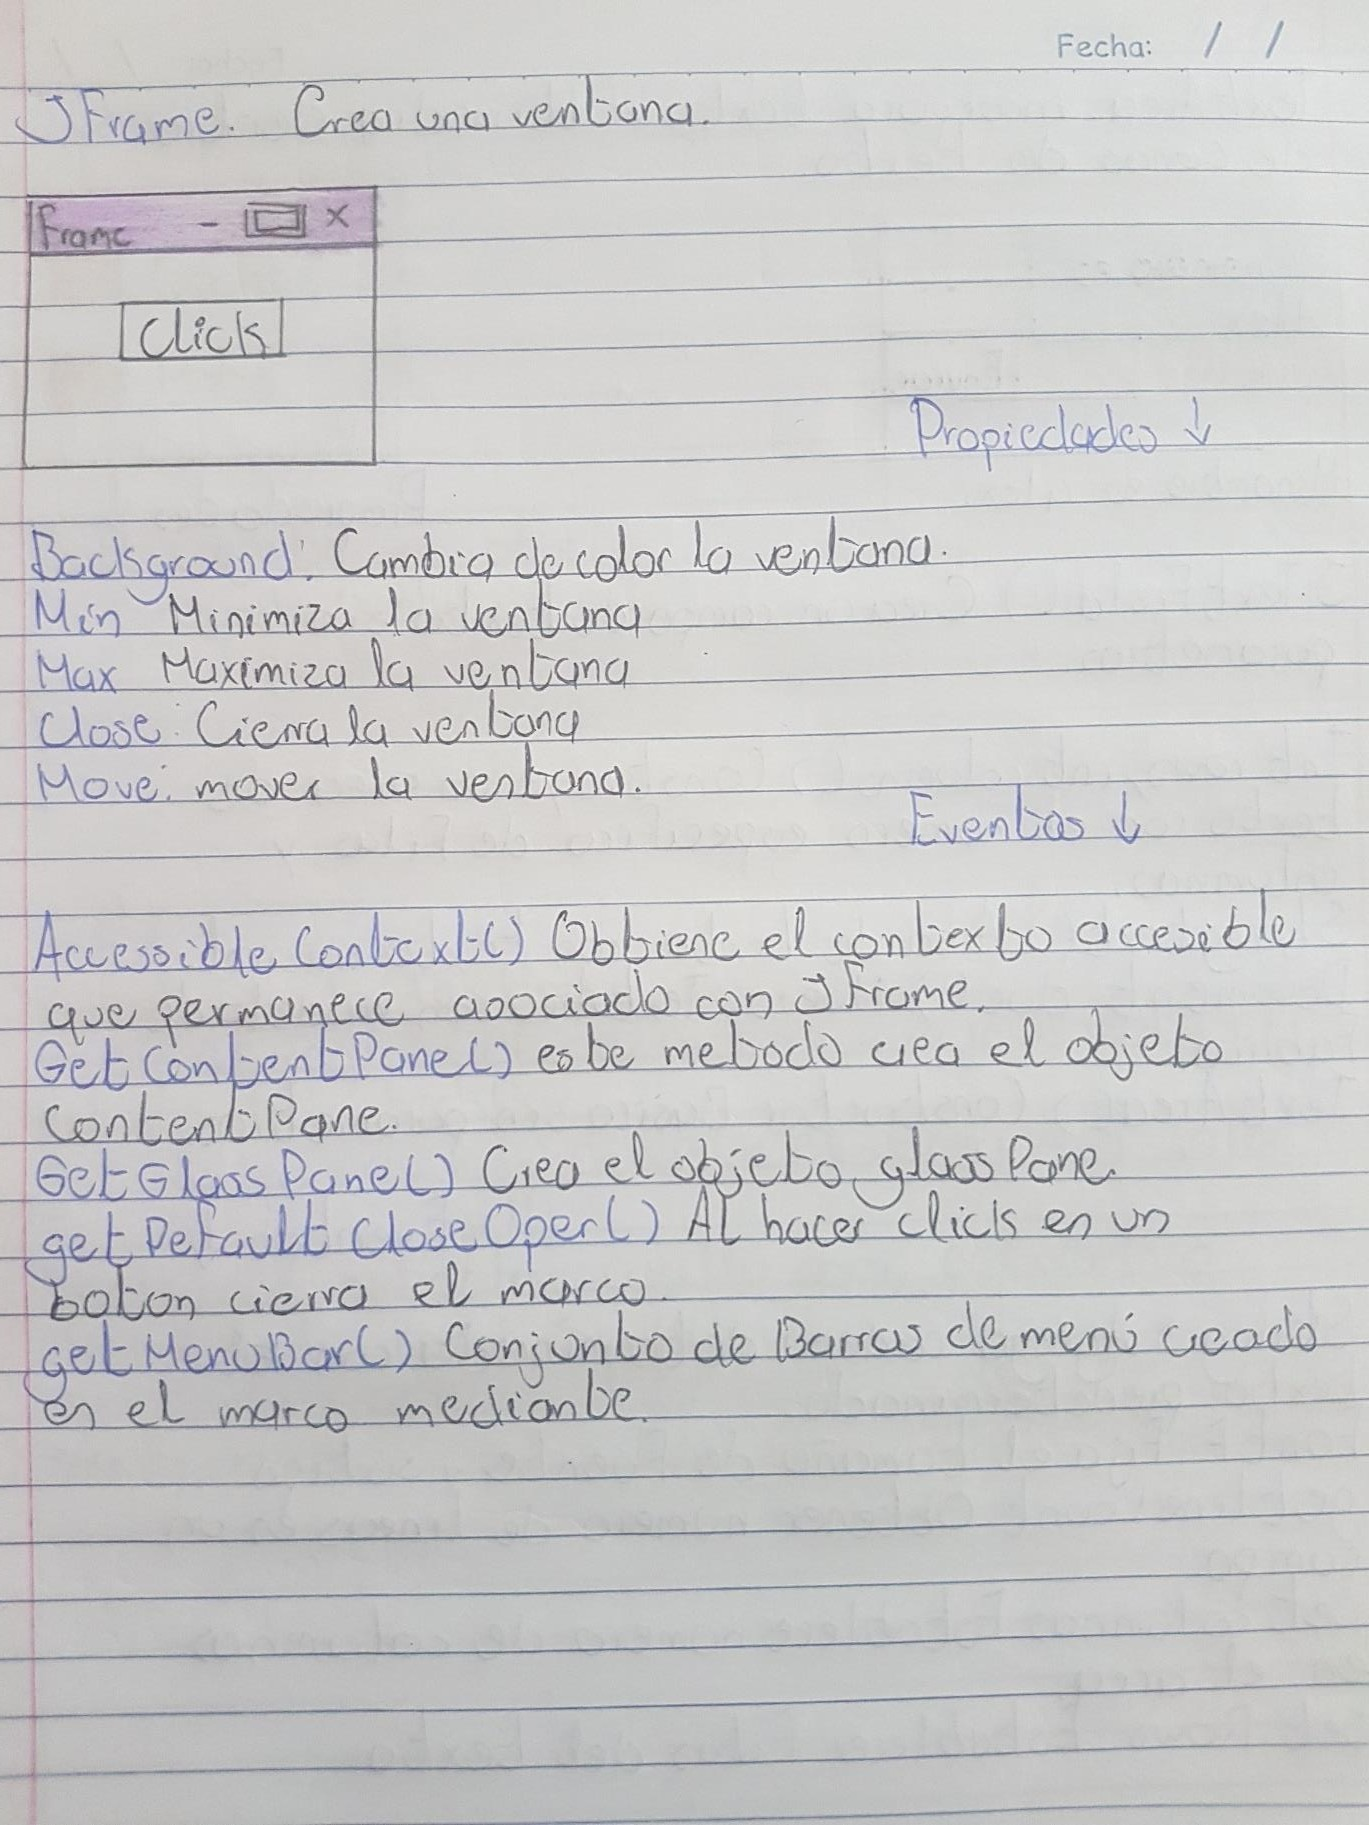 Fecha: / /
JFrame. Crea una ventana.
Frame - x
Click
Propiedades ↓
Background: Cambia de color la ventana.
Min Minimiza la ventana
Max Maximiza la ventana
Close: Cierra la ventana
Move: mover la ventana.
Eventos ↓
Accessible Context() Obtiene el contexto accesible
que permanece asociado con JFrame.
Get ContentPane() este metodo crea el objeto
contentPane.
Get Glass Pane() Crea el objeto glass Pane.
get Default Close Oper() Al hacer click en un
boton cierra el marco.
get MenuBar() Conjunto de Barras de menú creado
en el marco mediante.